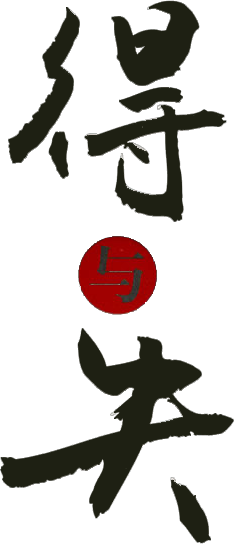 得
与
失